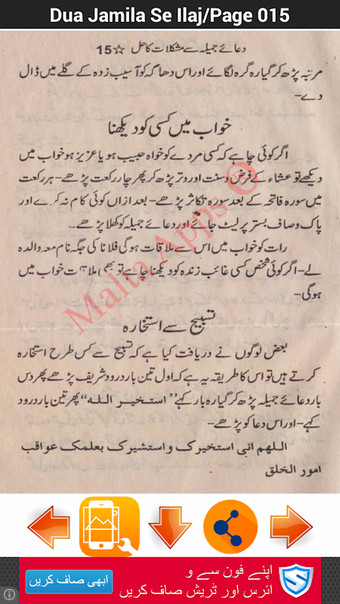 Dua Jamila Se Ilaj/Page 015
دعائے جمیلہ سے مشکلات کا حل ☆ 15
مرتبہ پڑھ کر گیارہ گرہ لگائے اور اس دھاگہ کو آسیب زدہ کے گلے میں ڈال
دے۔
خواب میں کسی کو دیکھنا
اگر کوئی چاہے کہ کسی مردے کو خواہ حبیب ہو یا عزیز ہو خواب میں
دیکھے تو عشاء کے فرض و سنت اور وتر پڑھ کر پھر چار رکعت پڑھے۔ ہر رکعت
میں سورہ فاتحہ کے بعد سورہ تکاثر پڑھے۔ بعد ازاں کوئی کام نہ کرے اور
پاک و صاف بستر پر لیٹ جائے اور دعائے جمیلہ کو کھلا پڑھے۔
رات کو خواب میں اس سے ملاقات ہو گی فلانا کی جگہ نام معہ والدہ
لے۔ اگر کوئی شخص کسی غائب زندہ کو دیکھنا چاہے تو بھی ملاقات خواب میں
ہوگی۔
تسبیح سے استخارہ
بعض لوگوں نے دریافت کیا ہے کہ تسبیح سے کس طرح استخارہ
کرتے ہیں تو اس کا طریقہ یہ ہے کہ اول تین بار درود شریف پڑھے پھر دس
بار دعائے جمیلہ پڑھ کر گیارہ بار کہے "استخیر اللہ" پھر تین بار درود
کہے۔ اور اس دعا کو پڑھے۔
اللهم انی استخیرک و استشیرک بعلمک عواقب
امور الخلق
Malita Apps ©
اپنے فون سے و
ائرس اور ٹریش صاف کریں
ابھی صاف کریں